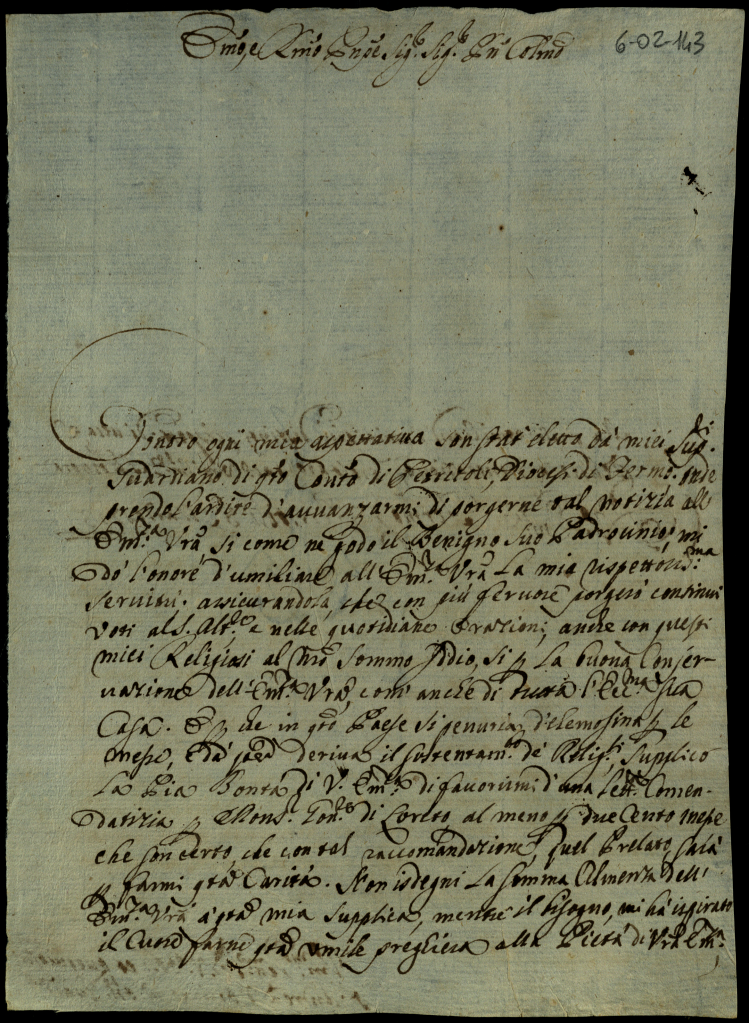 Emo, e Rmo Pnpe Sig.r Sig.r Pn Colmo
6-02-143
Contro ogni mia aspettativa son stat' eletto da miei Sup.ri
Guardiano di qto Conto di Petritoli, Diocesi di Fermo; onde
prendo l'ardire d'avvanzarmi di porgerne tal notizia all'
Em.za Vra, si come ne godo il Benigno suo Padrocinio; mi
dò l'onore d'umiliare all' Em.za Vra La mia rispettosis.ma
servitù, assicurandola, che con più fervore porgerò continui
voti al S. Alt.re e nelle quotidiane Orazioni, anche con questi
miei Religiosi al Nro Sommo Iddio, si p La buona Conser-
vazione dell' Em.za Vra, com' anche di tutta l'Ecc.ma sua
Casa. E p che in qto Paese si penuria d'elemosina p le
messe, e da qta deriva il sostentam.to de' Relig.si, supplico
La Pia Bontà di V. Em.za di favorirmi d'una Lett.a Comen-
datizia p Mons.r di Loreto, al meno p due Cento messe
che son certo, che con tal raccomandazione, quel Prelato, sarà
p farmi qta Carità. Non isdegni La somma Clmenza dell'
Em.za Vra a qta mia supplica, mentre il bisogno, mi hà ispirato
il Cuore farne qta umile preghiera alla Pietà di Vra Em.za